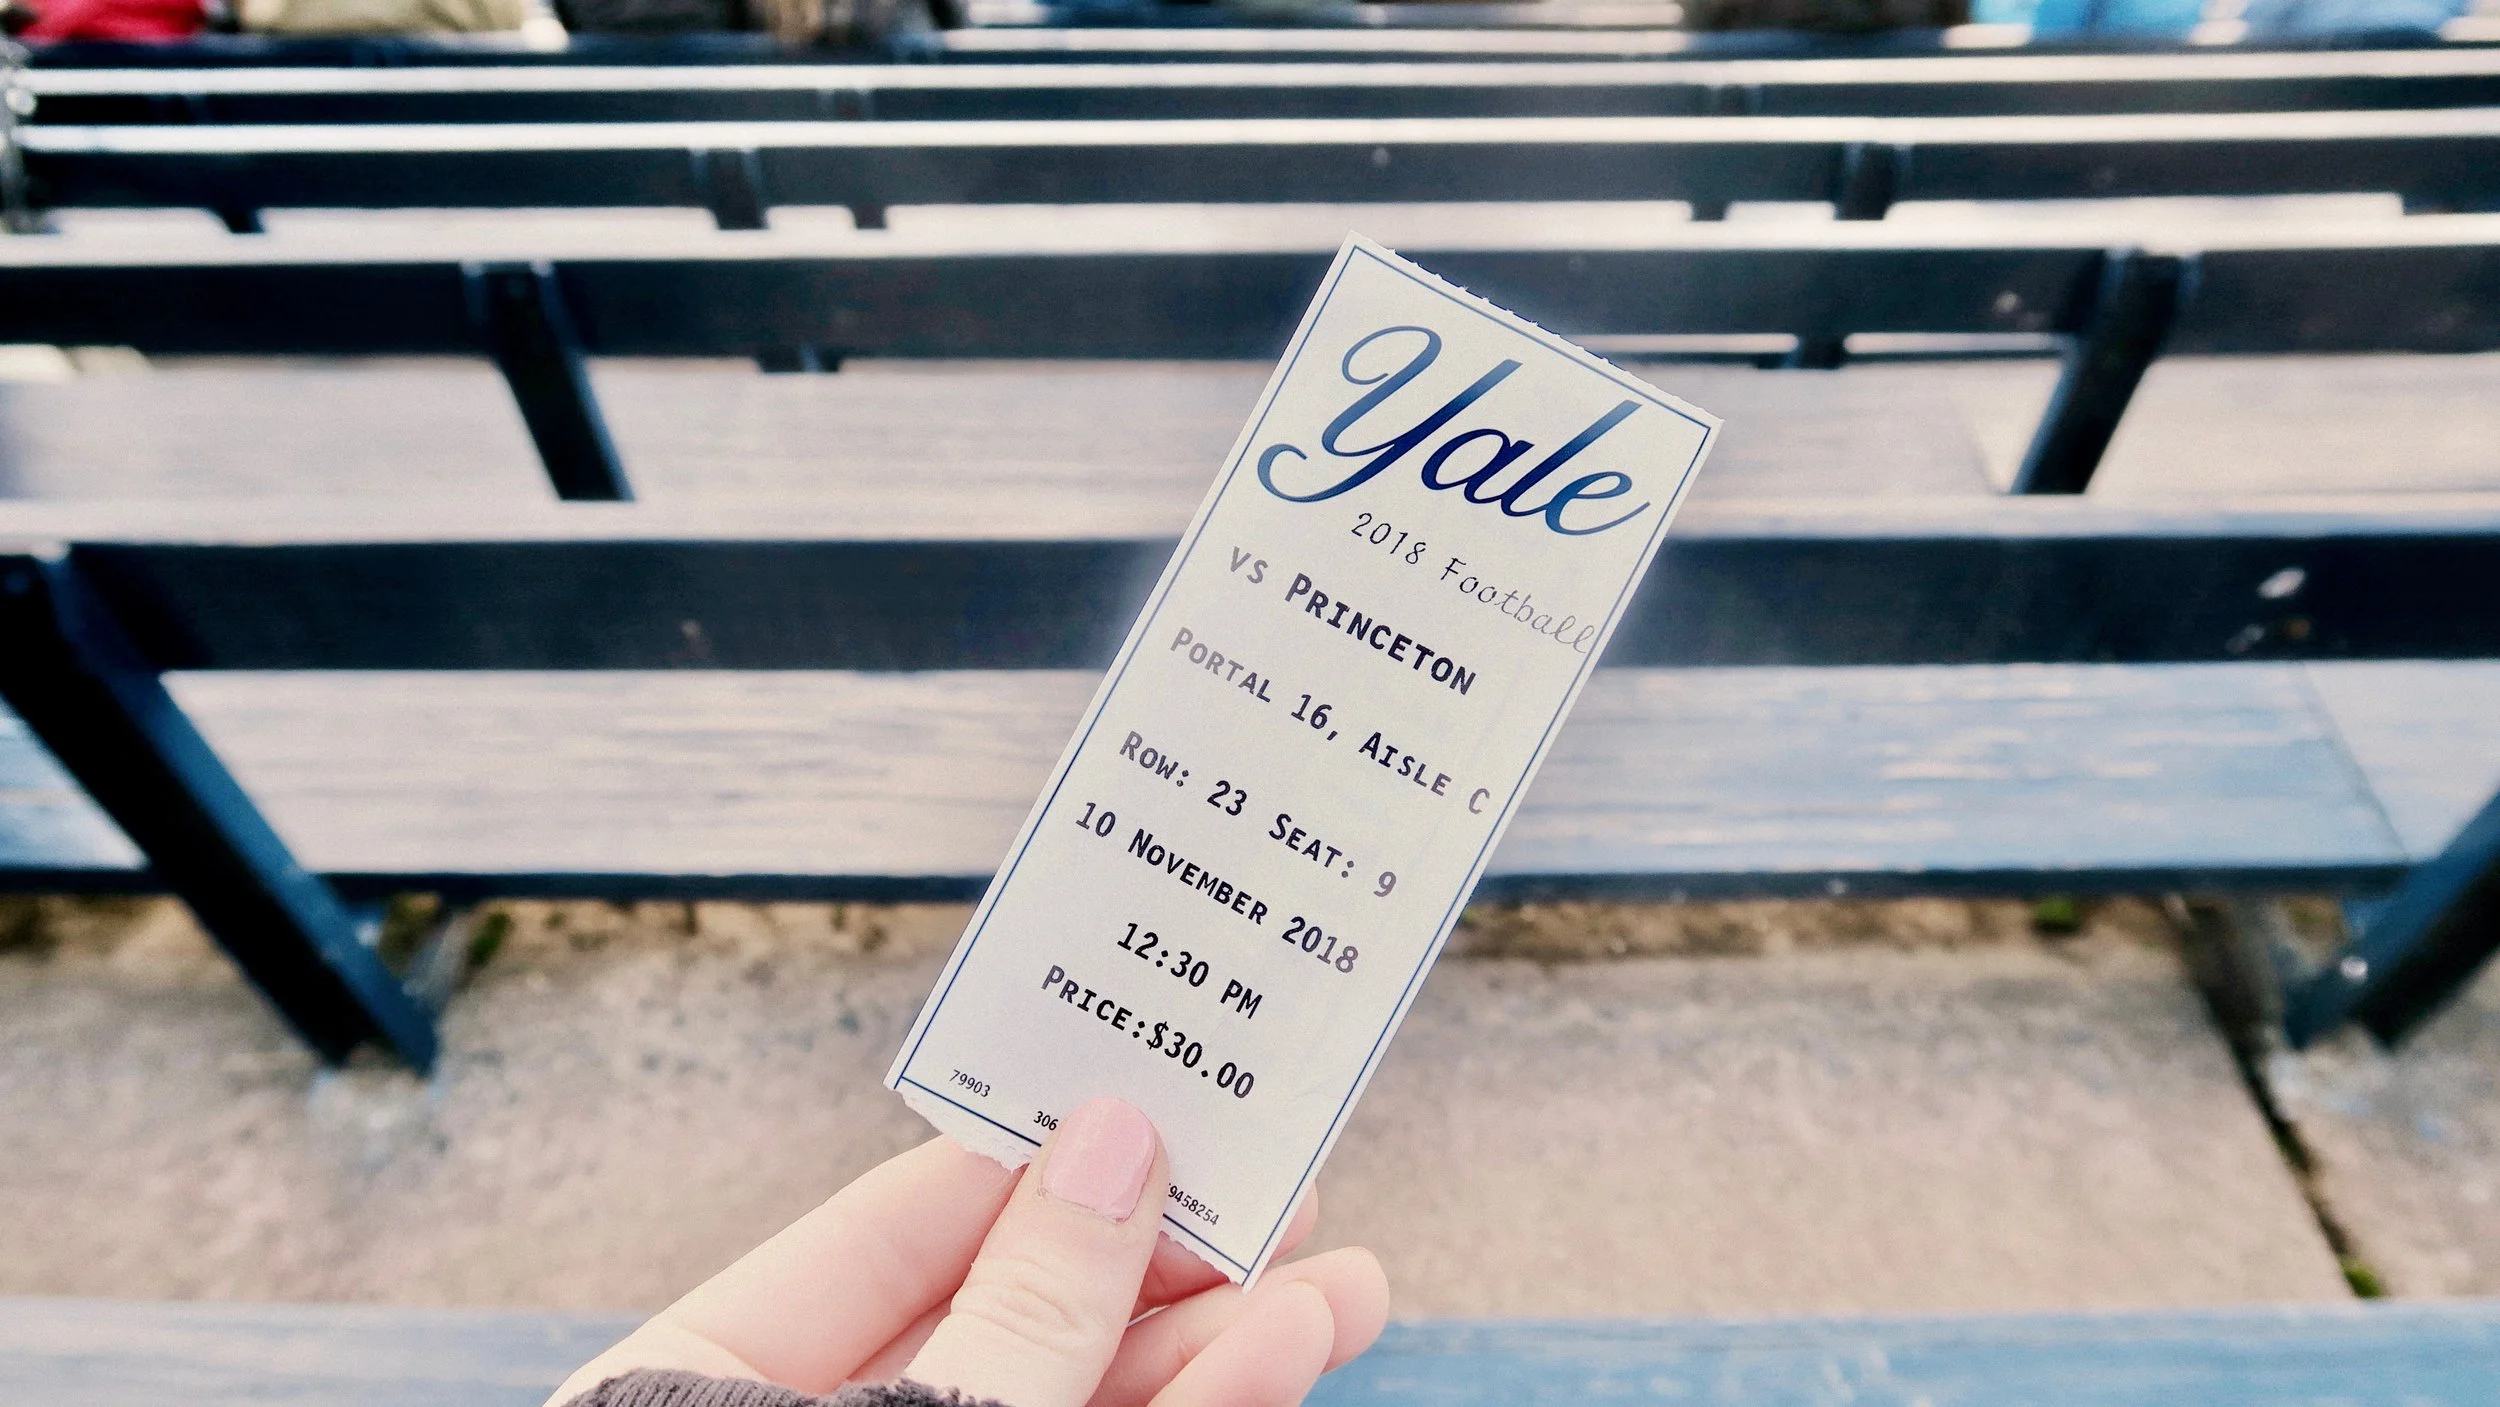 Yale
2018 Football
vs PRINCETON
PORTAL 16, AISLE C
ROW: 23 SEAT: 9
10 NOVEMBER 2018
12:30 PM
PRICE:$30.00
79903
306
9458254